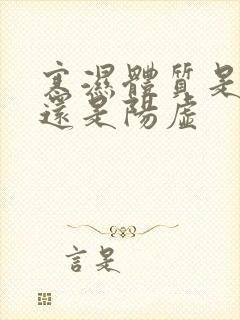 寒濕體質是
還是陽虛
言是